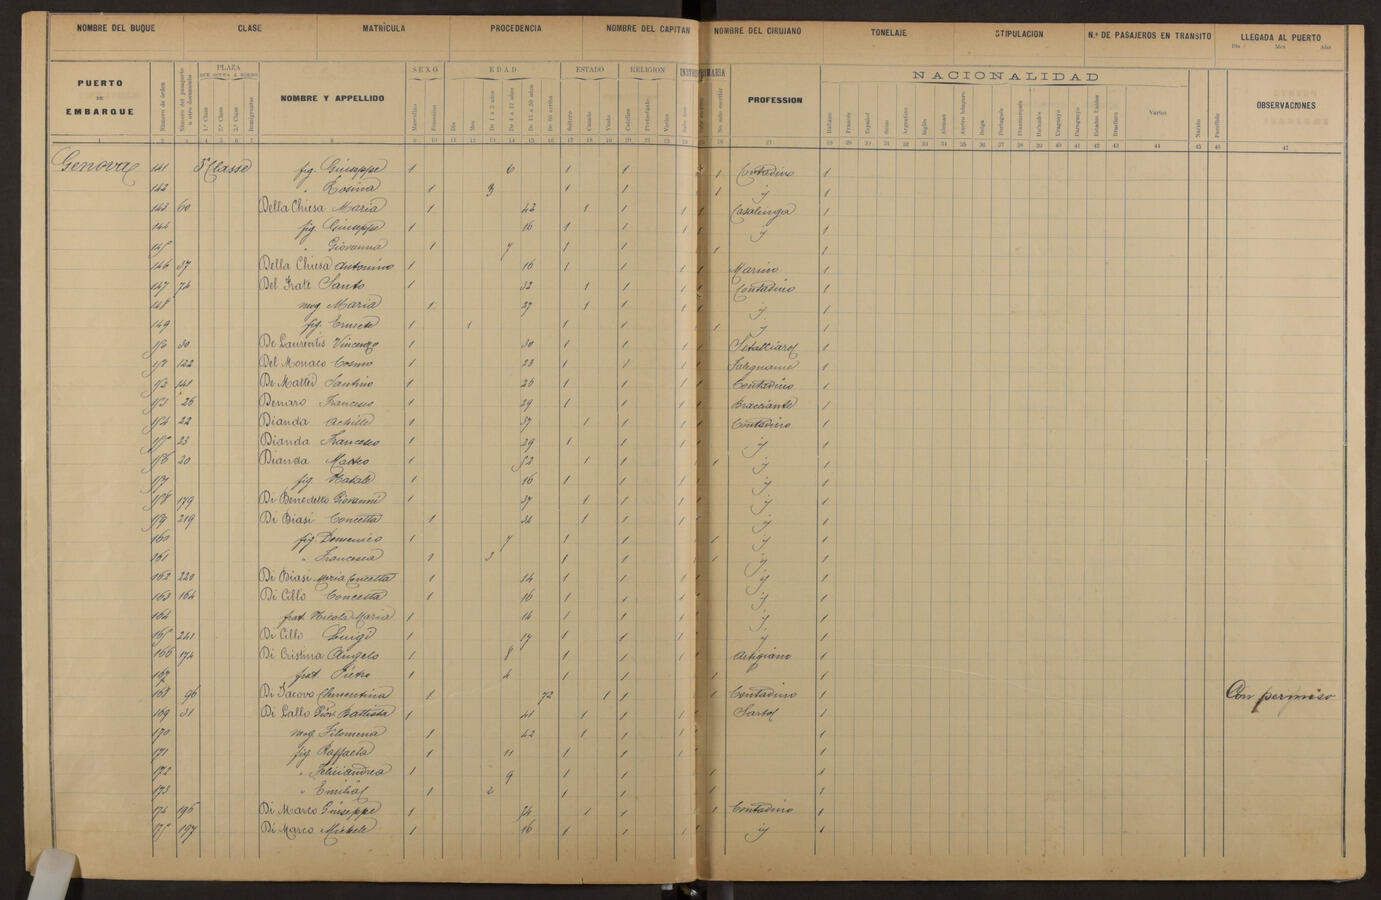 NOMBRE DEL BUQUE CLASE MATRÌCULA PROCEDENCIA NOMBRE DEL CAPITAN NOMBRE DEL CIRUJANO TONELAJE STIPULACION N.º DE PASAJEROS EN TRANSITO LLEGADA AL PUERTO
Dia Mes Año
PUERTO DE EMBARQUE Número de órden Número del pasaporte ú otro documento PLAZA QUE OCUPA Á BORDO 1.ª Clase 2.ª Clase 3.ª Clase Inmigrantes NOMBRE Y APPELLIDO SEXO Masculino Femenino EDAD Dia Mes De 1 á 3 años De 4 á 12 años De 13 á 59 años De 60 arriba ESTADO Soltero Casado Viudo RELIGION Católico Protestante Varios PROFESSION NACIONALIDAD Italiano Frances Español Suizo Argentino Inglés Aleman Austro húngaro Belga Portugués Dinamarqués Holandés Uruguayo Paraguayo Estados Unidos Brasilero Varios Nacido Fallecido OBSERVACIONES
Genova 141 3ª Classe fig. Giuseppe 1 6 1 1 1 Contadino 1
142 " Rosina 1 3 1 1 1 ij 1
143 60 Della Chiesa Maria 1 42 1 1 1 1 Casalinga 1
144 fig. Giuseppe 1 16 1 1 1 1 ij 1
145 " Giovanna 1 7 1 1 1 1
146 37 Della Chiesa Antonino 1 16 1 1 1 1 Marino 1
147 74 Del Frate Santo 1 32 1 1 1 1 Contadino 1
148 mog Maria 1 27 1 1 1 1 ij 1
149 fig. Ernesto 1 1 1 1 1 ij 1
150 30 De Laurentis Vincenzo 1 30 1 1 1 1 1
151 122 Del Monaco Cosmo 1 23 1 1 1 1 Falegname 1
152 141 De Mattei Santino 1 25 1 1 1 1 Contadino 1
153 26 Denaro Francesco 1 29 1 1 1 1 Bracciante 1
154 22 Dianda Achille 1 37 1 1 1 1 Contadino 1
155 23 Dianda Francesco 1 29 1 1 1 1 ij 1
156 20 Dianda Matteo 1 52 1 1 1 ij 1
157 fig. Natale 1 16 1 1 1 1 ij 1
158 179 Di Benedetto Giovanni 1 37 1 1 1 1 ij 1
159 219 Di Biasi Concetta 1 34 1 1 1 1 ij 1
160 fig. Domenico 1 7 1 1 1 ij 1
161 " Francesca 1 3 1 1 1 ij 1
162 220 Di Biasi Maria Concetta 1 14 1 1 1 1 ij 1
163 164 Di Cillo Concetta 1 16 1 1 1 1 ij 1
164 frat. Nicola Maria 1 14 1 1 1 1 ij 1
165 241 Di Cillo Luigi 1 17 1 1 1 1 ij 1
166 174 Di Cristina Angelo 1 8 1 1 1 1 Artigiano 1
167 frat. Pietro 1 4 1 1 1 1
168 96 Di Iacovo Clementina 1 72 1 1 1 Contadino 1 Con permiso
169 31 Di Lallo Giov. Battista 1 41 1 1 1 1 Sarto 1
170 mog. Filomena 1 42 1 1 1 1 1
171 fig. Raffaela 1 11 1 1 1 1 1
172 " 1 9 1 1 1 1
173 " Emilia 1 2 1 1 1 1
174 196 Di Marco Giuseppe 1 54 1 1 1 Contadino 1
175 197 Di Marco Michele 1 16 1 1 1 1 ij 1